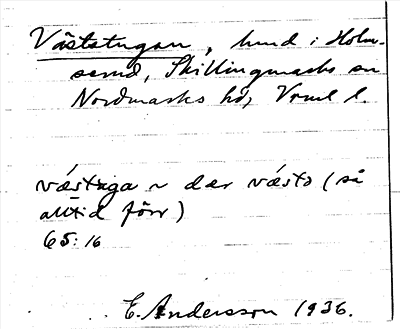 Väststugan, hund i Holm-
serud, Skillingmarks sn
Nordmarks hd, Vrml l.
væstuga ~ där væsta (så
alltid förr)
65:16
E. Andersson 1936.